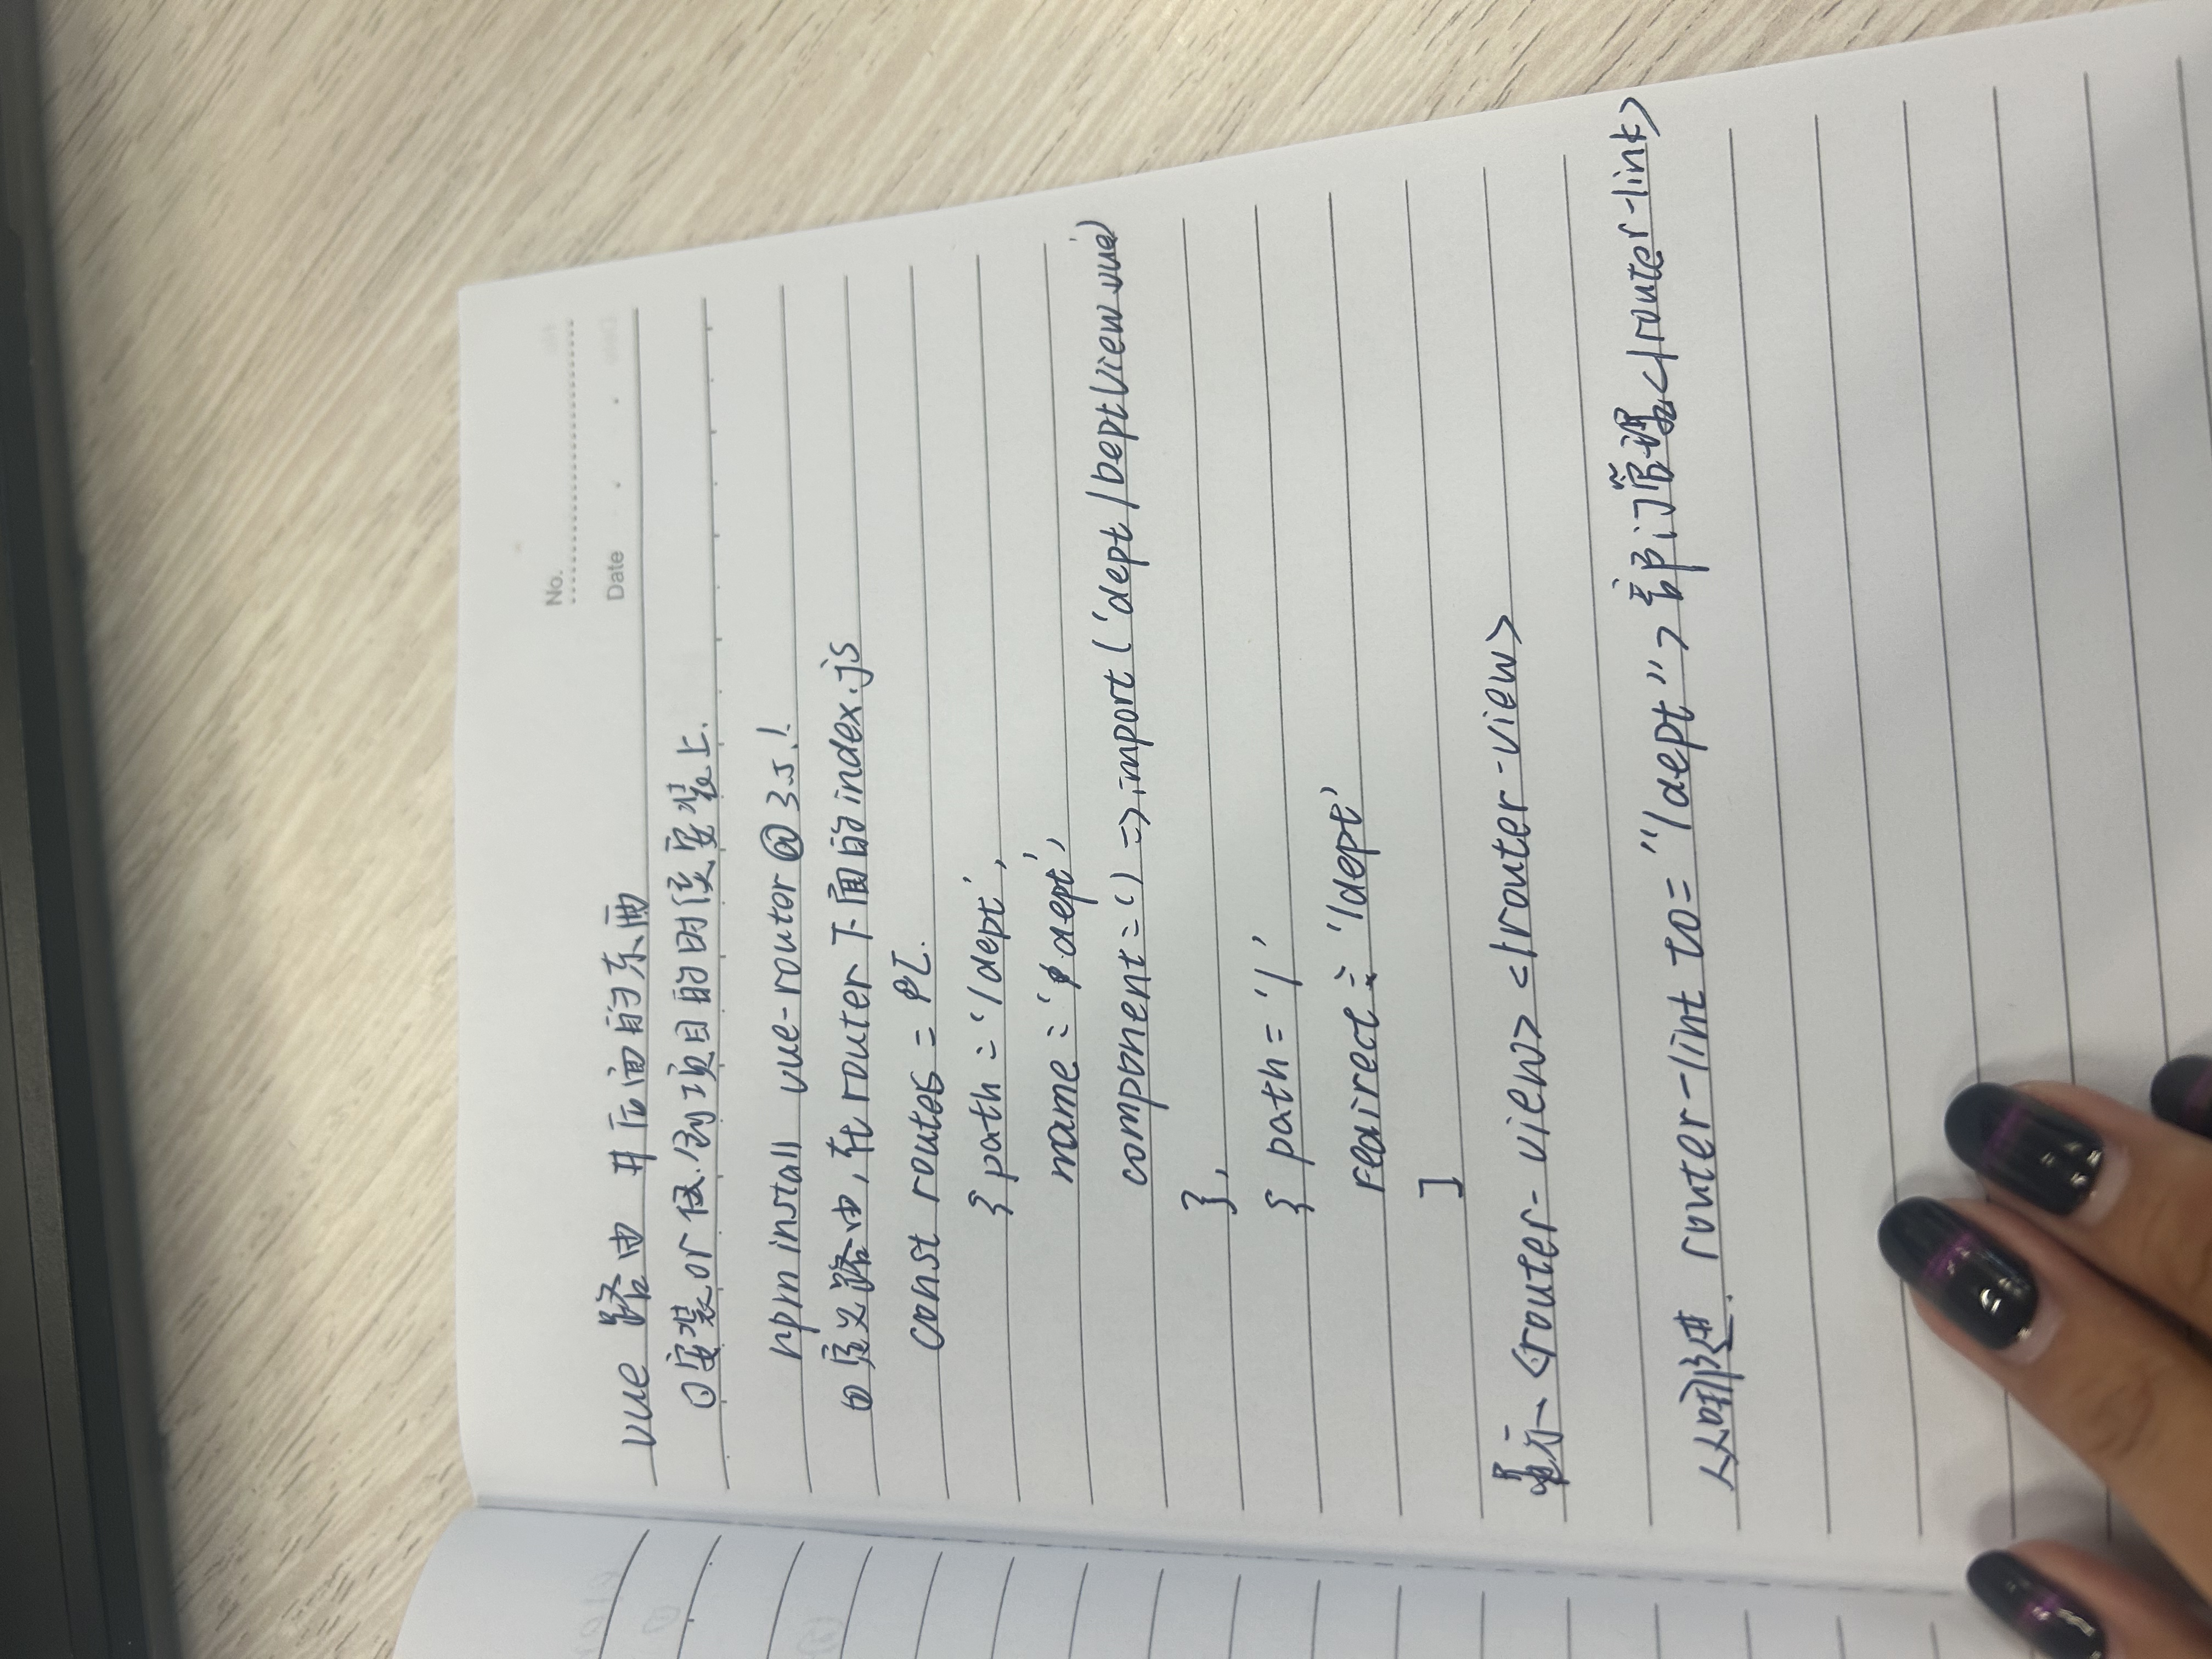 No.
Date
vue 路由 #后面的东西
①安装or 创项目的时侯安装上.
npm install vue-router@3.5.1
②定义路由,在router下面的index.js
const routes = [.
{ path : '/dept',
name : 'dept',
component = () => import('dept/DeptView.vue')
},
{ path = '/'
redirect : '/dept'
]
显示 <router-view></router-view>
从哪进. router-lint to="/dept">部门管理</router-link>